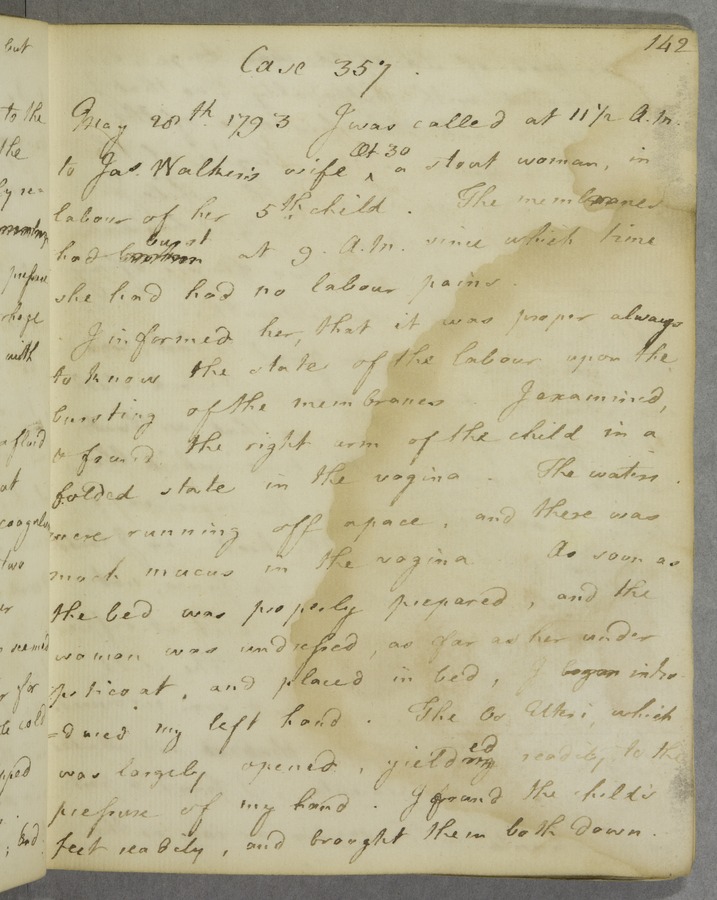 142
Case 357.
May 28th. 1793 I was called at 11 1/2 A.M.
to Jas. Walker's wife Æt 30 a stout woman, in
labour of her 5th. child. The membranes
had burst at 9. A.M. since which time
she had had no labour pains.
I informed her, that it was proper always
to know the state of the labour upon the
bursting of the membranes. I examined,
& found the right arm of the child in a
folded state in the vagina. The waters
were running off apace, and there was
much mucus in the vagina. As soon as
the bed was properly prepared, and the
woman was undressed, as far as her under
petticoat, and placed in bed, I began intro-
=duced my left hand. The Os Uteri, which
was largely opened, yielded readily to the
pressure of my hand. I found the child's
feet readily, and brought them both down.
but
to the
the
ly re=
pressure
with
a fluid
at
two
seemed
for
cold